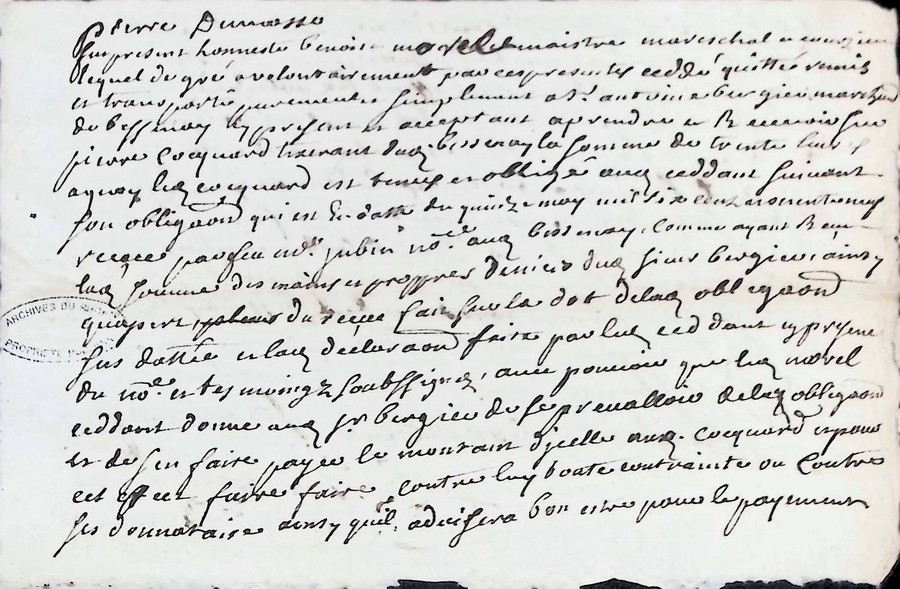 pierre Dumasso
fut present honneste benoist morel maistre mareschal
lequel de gré a volontairement par ces presentes ceddé quitté remis
et transporté purement et simplement a Sr. antoine bergier marchand
de bessenay cy present et acceptant a prendre et Recevoir sur
pierre Cocquard tixerant dud. bessenay la somme de trente livres
a quoy led cocquard est tenus et obligé aud ceddant suivant
son obligaõn qui est En datte du quinze may mil six cent nonente neuf
receue par feu me. jubin nore. aud bessenay. Comme ayant Receu
lad somme des mains et propres deniers dud sieur bergier ainsy
quapert du receue fait sur le dot delad obligaõn
sus dattée et lad declaraõn faite par led ceddant cy present
du nore. et tesmoingz soubssignez, avec pouvoir que led morel
ceddant donne aud sr. bergier de se prevalloir delad obligaõn
et de sen faire payer le montant dicelle aud. Cocquard et pour
cet effect faire faire contre luy toute contrainte ou Contre
ses donnataire ainsy quil advisera bon estre pour le payement
ARCHIVES DU
PROPRIETE